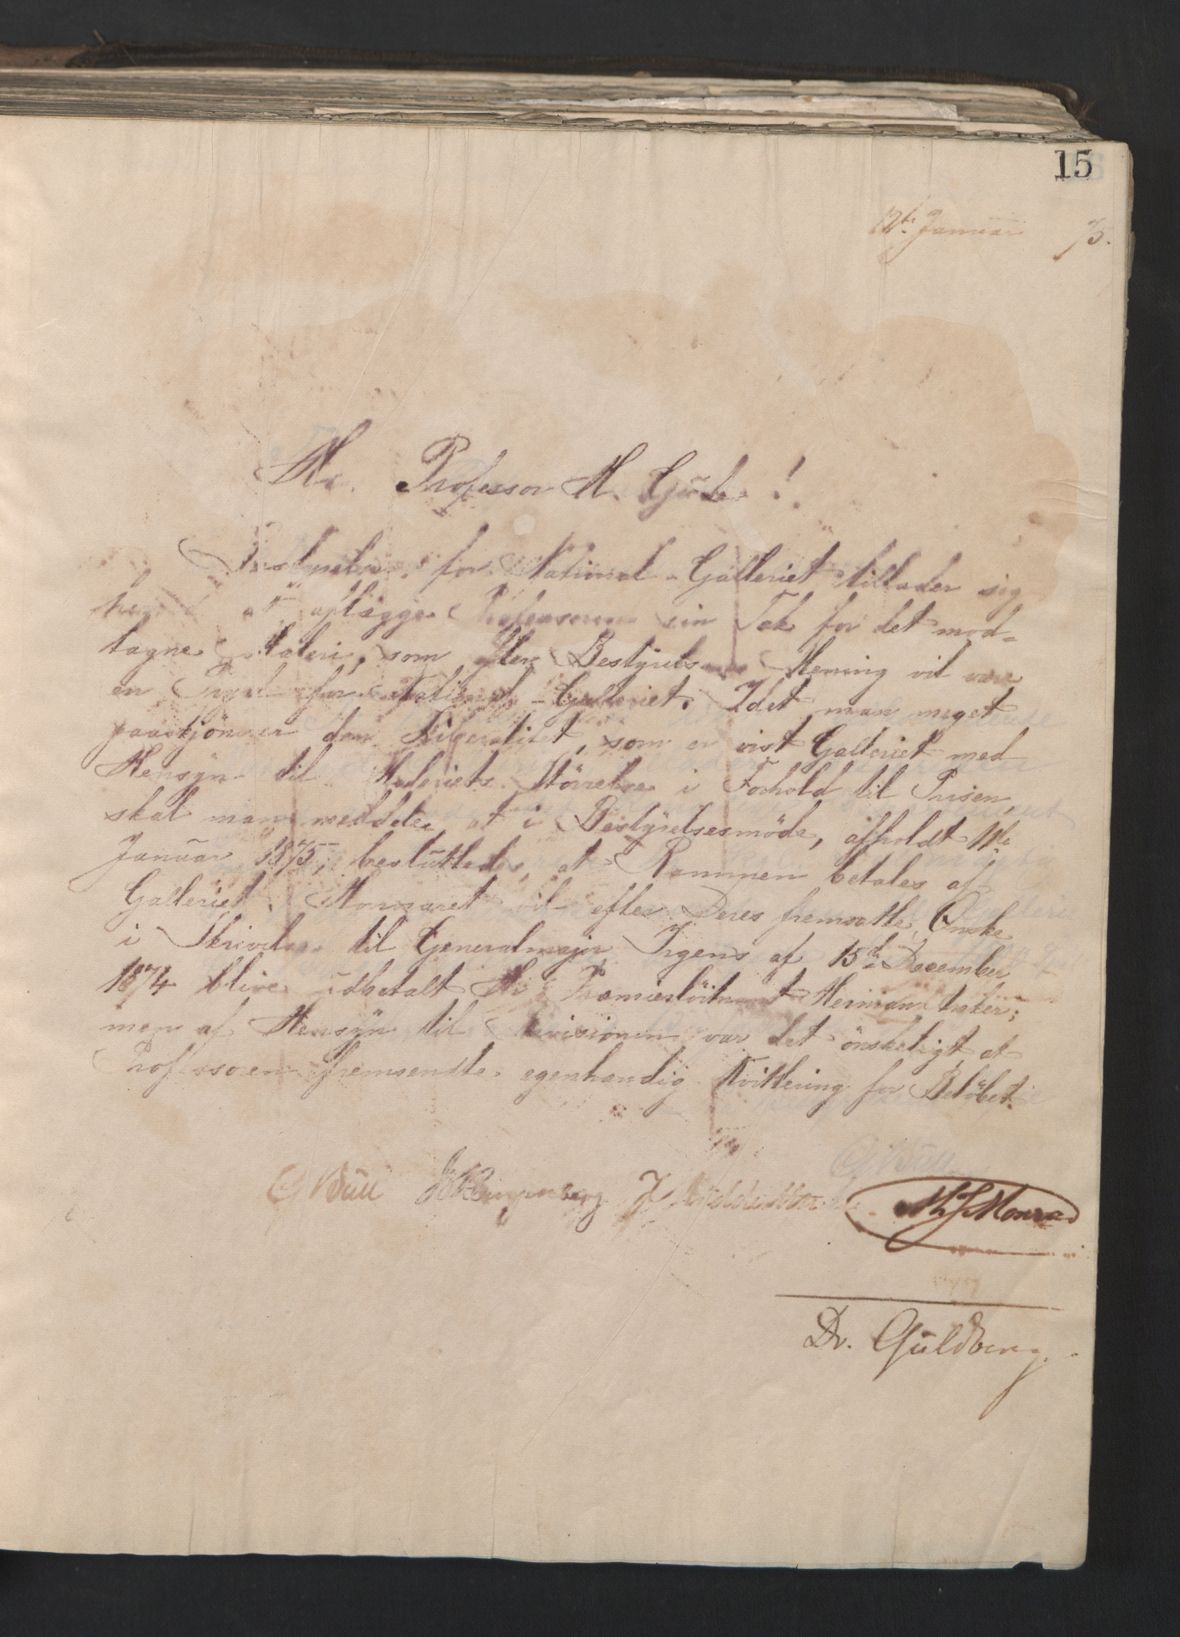 15
12te Januar 75.
Hr. Professor H. Gude!
Bestyrelsen for National-Galleriet tillader sig
herved at aflægge Professoren sin Tak for det mod-
tagne Maleri, som efter Bestyrelsens Mening vil være
en Prydelse for National-Galleriet. Idet man meget
paaskjönner den Liberalitet, som er vist Galleriet med
Hensyn til Maleriets Störrelse i Forhold til Prisen,
skal man meddele, at i Bestyrelsesmöde, afholdt 11te
Januar 1875, besluttedes, at Rammen betales af
Galleriet. Honoraret vil efter Deres fremsatte Önske
i Skrivelse til Generalmajor Irgens af 15de December
1874 blive udbetalt Hr. Premierlöitnant Herman
men af Hensyn til Revisionen var det önskeligt at
Professoren fremsendte egenhændig Kvittering for Belöbet.
G Bull J Middelthun M J Monrad
Dr. Guldberg.